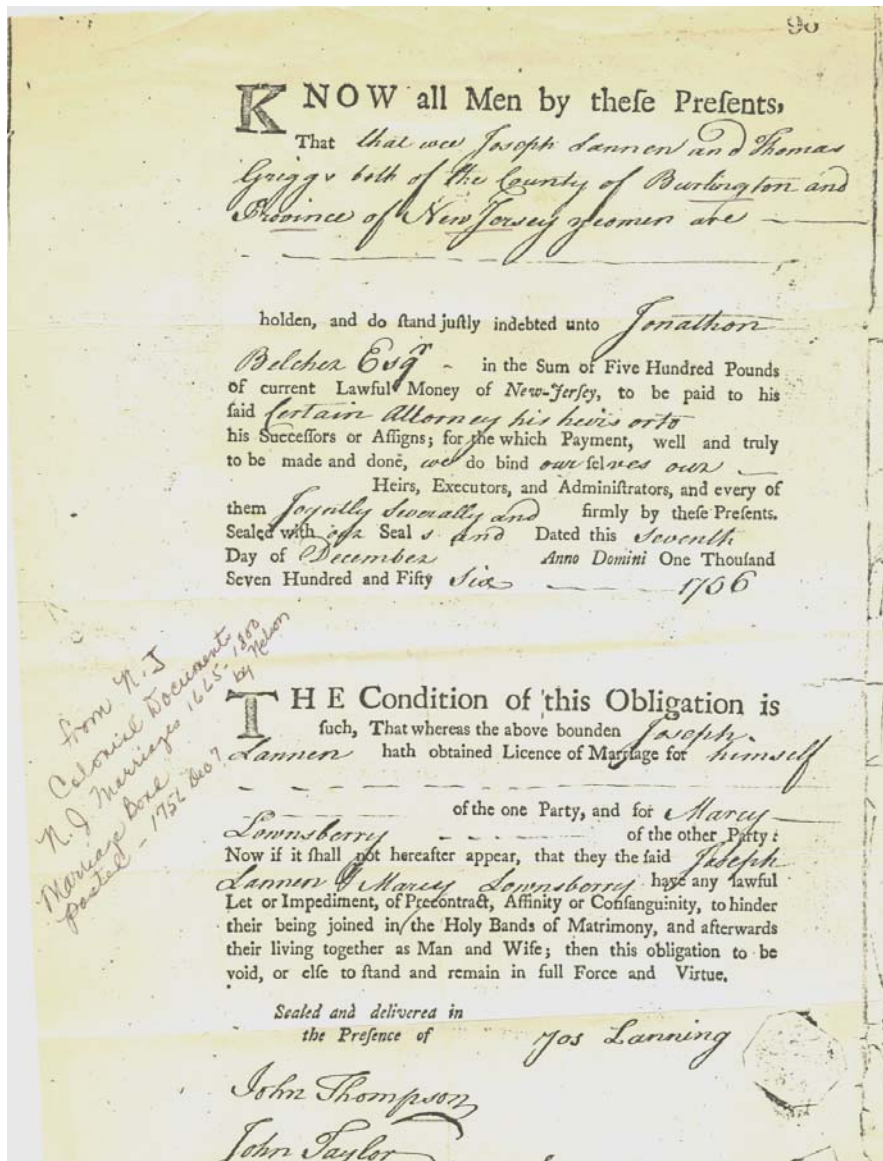 96
KNOW all Men by theſe Preſents,
That that wee Joseph Lannen and Thomas
Griggs both of the County of Burlington and
Province of New Jersey yeomen are
holden, and do ſtand juſtly indebted unto Jonathon
Belcher Esqr in the Sum of Five Hundred Pounds
of current Lawful Money of New-Jerſey, to be paid to his
ſaid Certain Attorney his heirs or to
his Succeſſors or Aſſigns; for the which Payment, well and truly
to be made and done, we do bind our ſelves our
Heirs, Executors, and Adminiſtrators, and every of
them Joyntly Severally and firmly by theſe Preſents.
Sealed with our Seal s and Dated this Seventh
Day of December Anno Domini One Thouſand
Seven Hundred and Fifty Six 1756
from N.J
Colonial Documents
N.J Marriages 1665-1800
by Nelson
Marriage Bond
posted - 1756 Dec 7
THE Condition of this Obligation is
ſuch, That whereas the above bounden Joseph
Lannen hath obtained Licence of Marriage for himself
of the one Party, and for Marcy
Lownsberry of the other Party:
Now if it ſhall not hereafter appear, that they the ſaid Joseph
Lannen & Marcy Lownsberry have any lawful
Let or Impediment, of Precontract, Affinity or Conſanguinity, to hinder
their being joined in the Holy Bands of Matrimony, and afterwards
their living together as Man and Wife; then this obligation to be
void, or elſe to ſtand and remain in full Force and Virtue.
Sealed and delivered in
the Preſence of
Jos Lanning
John Thompson
John Taylor